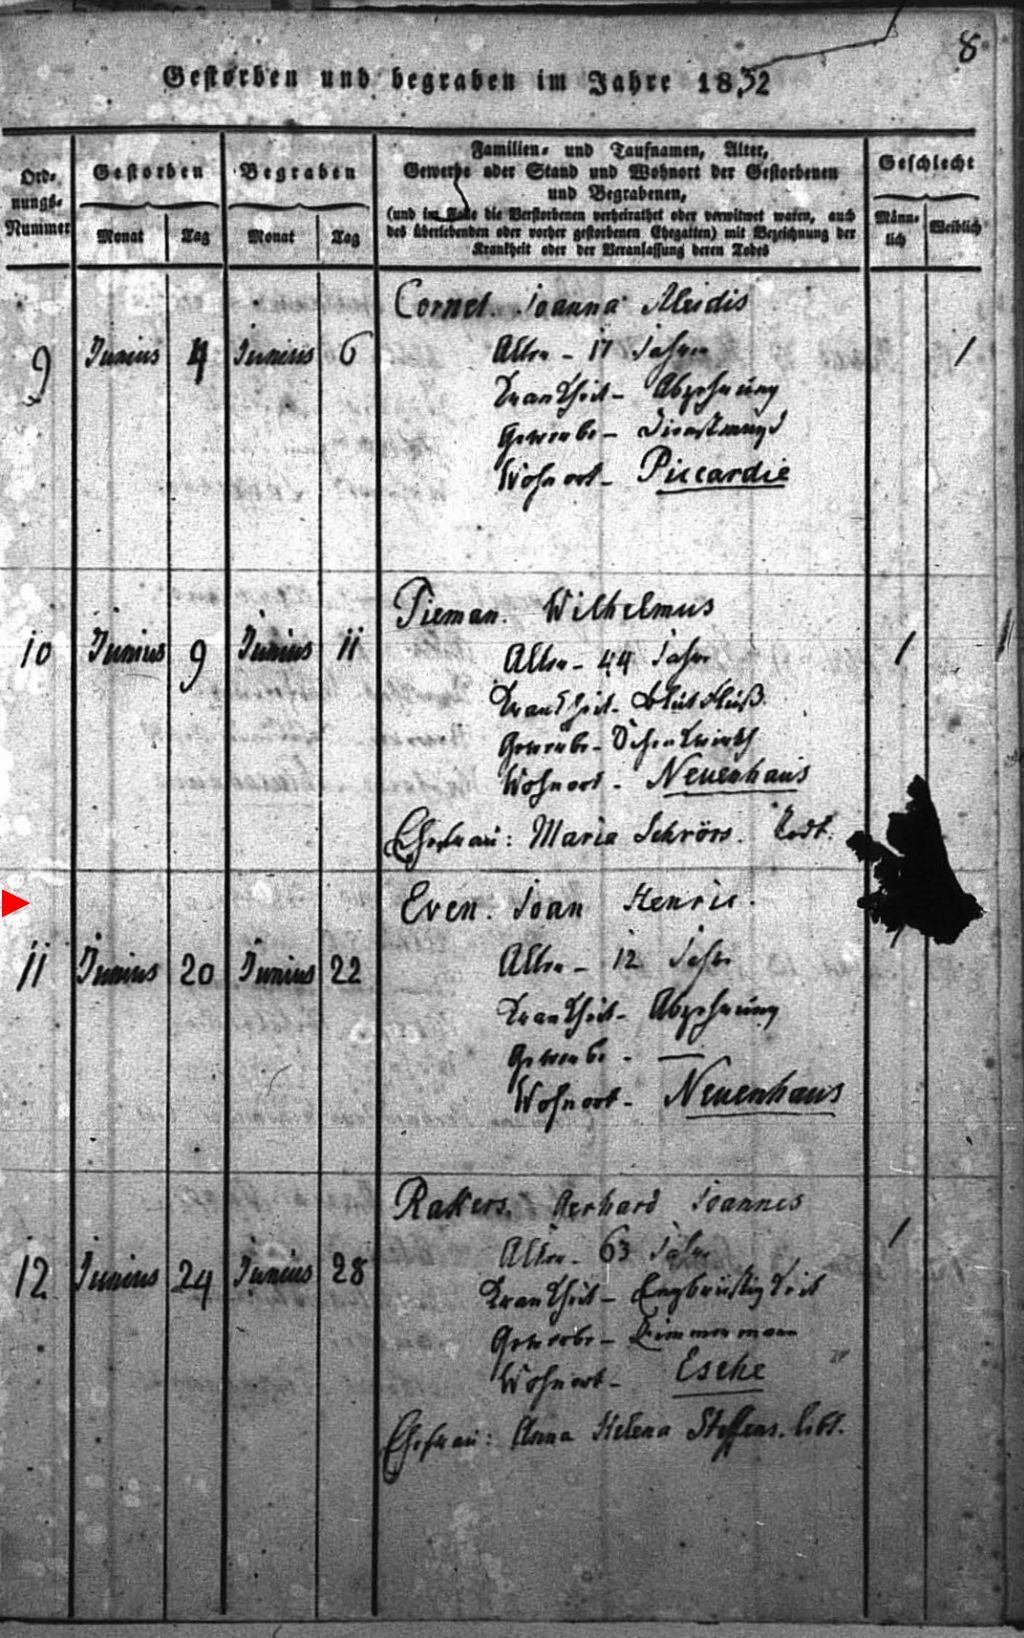 8
Gestorben und begraben im Jahre 1832
Ord-
nungs-
Nummer
Gestorben
Monat
Tag
Begraben
Monat
Tag
Familien- und Taufnamen, Alter,
Gewerbe oder Stand und Wohnort der Gestorbenen
und Begrabenen,
(und im Falle die Verstorbenen verheirathet oder verwitwet waren, auch
des überlebenden oder vorher gestorbenen Ehegatten) mit Bezeichnung der
Krankheit oder der Veranlassung deren Todes
Geschlecht
Männ-
lich
Weiblich
Cornel. Joanna Aleidis
9 Junius 4 Junius 6 Alter - 17 Jahre /
Krankheit - Abzehrung
Gewerbe - Dienstmagd
Wohnort - Piccardie
Tieman. Wilhelmus
10 Junius 9 Junius 11 Alter - 44 Jahr /
Krankheit - Blutfluß
Gewerbe - Schenkwirth
Wohnort - Neuenhaus
Ehefrau: Maria Schrörs. Todt.
Even. Joan Henric.
11 Junius 20 Junius 22 Alter - 12 Jahr
Krankheit - Abzehrung
Gewerbe - —
Wohnort - Neuenhaus
Rakers. Gerhard Joannes
12 Junius 24 Junius 28 Alter - 63 Jahr /
Krankheit - Engbrüstigkeit
Gewerbe - Zimmermann
Wohnort - Esche
Ehefrau: Anna Helena Steffens. lebt.